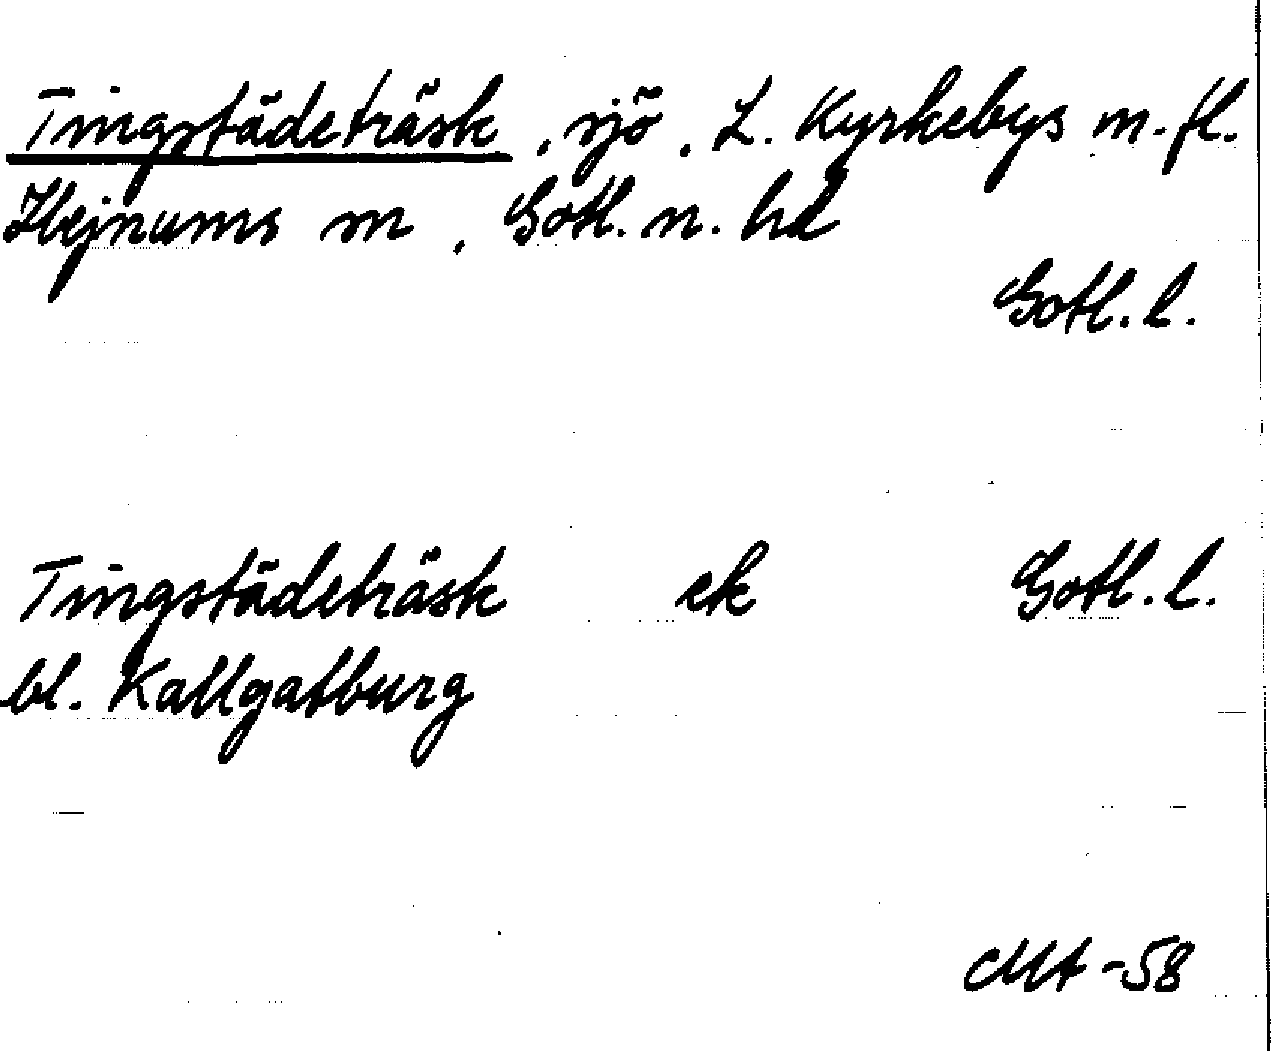 Tingstädeträsk, sjö, L. Kyrkebys m.fl.
Hejnums sn, Gotl. n. hd
Gotl. l.
Tingstädeträsk ek Gotl. l.
bl. Kallgatburg
MA -58